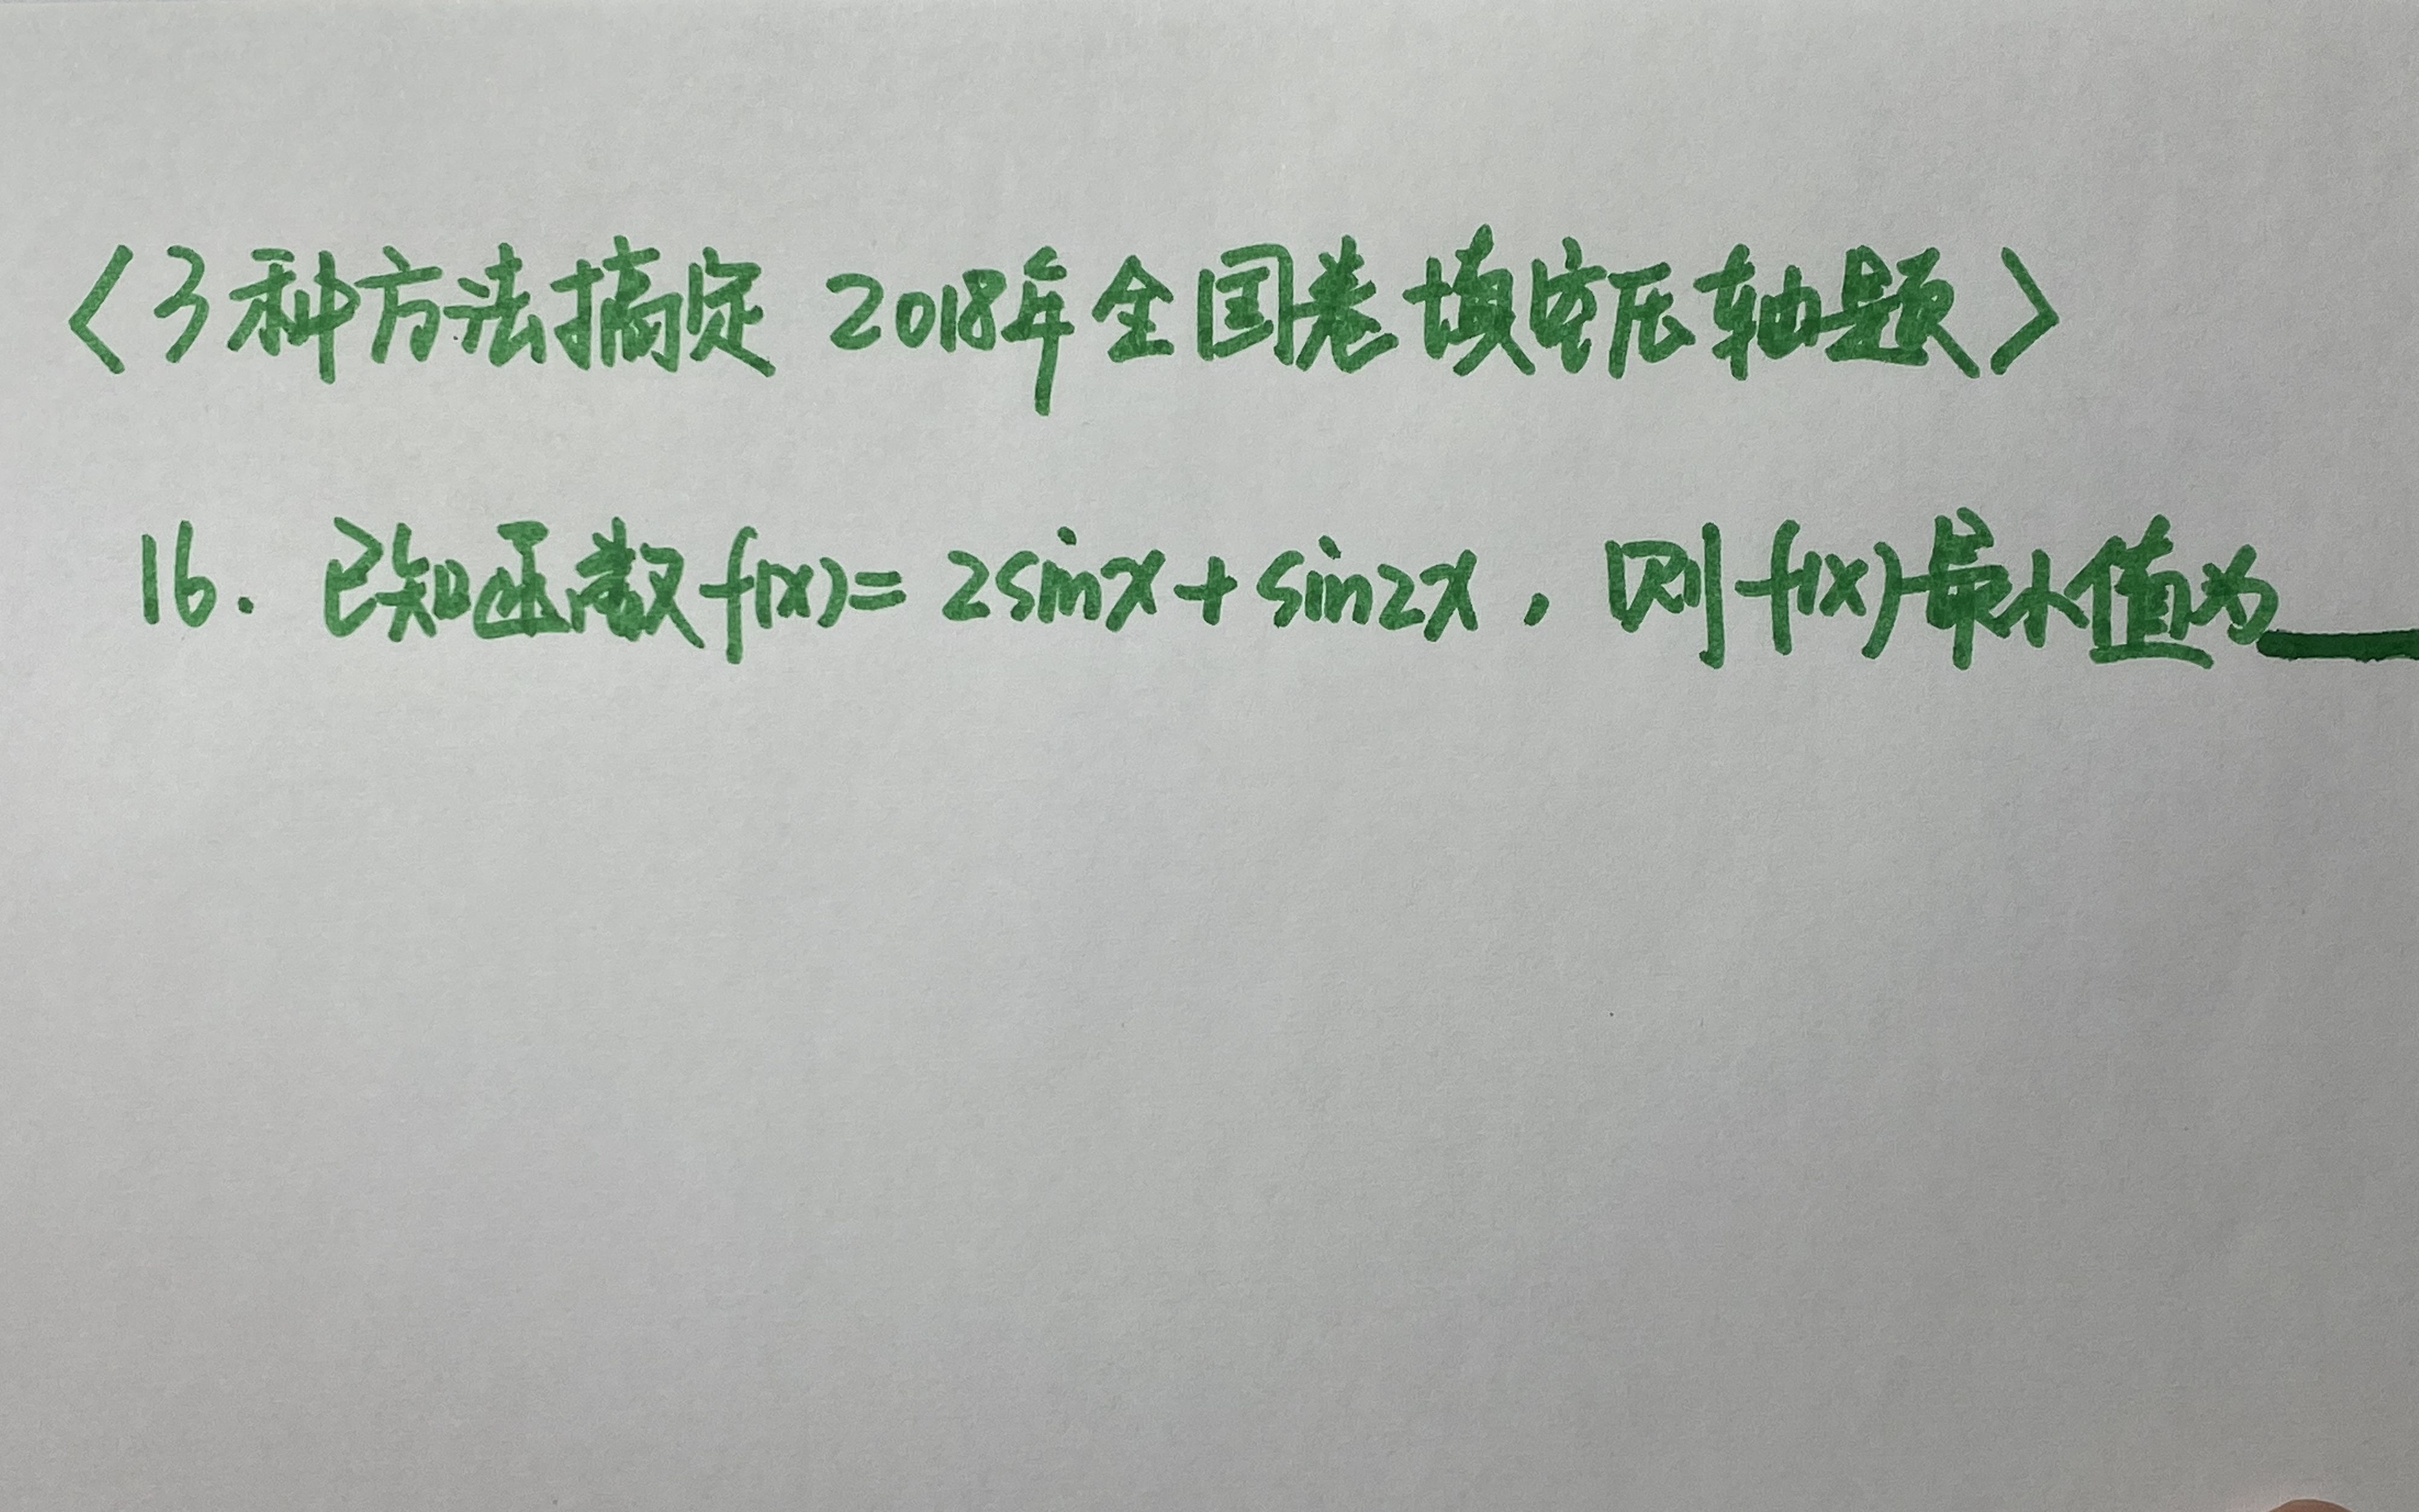 <3种方法搞定 2018年全国卷填空压轴题>
16. 已知函数f(x)=2sinx+sin2x，则f(x)最小值为___